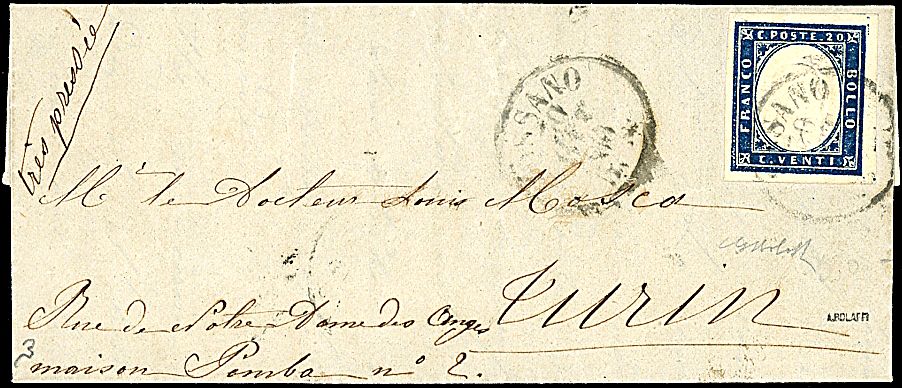 très pressée
C. POSTE. 20.
FRANCO
BOLLO
C. VENTI
SANO
SANO
Mr. le Docteur Louis Mosca
Rue de Notre Dame des Anges Turin
maison Pomba n° 2.
A. BOLAFFI